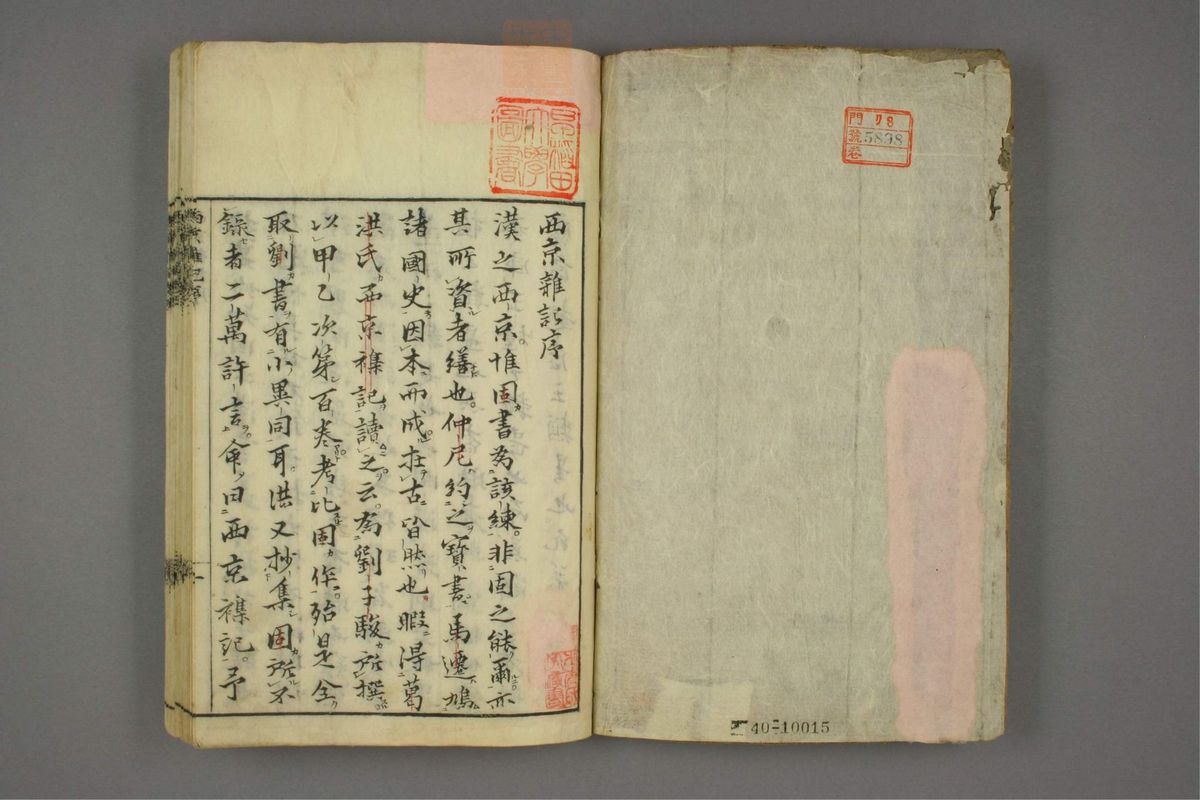 西京雜記序
漢之西京惟固書為該練非固之能爾亦
其所資者繕也仲尼約之寶書馬遷鳩
諸國史因本而成在古皆然也暇得葛
洪氏西京襍記讀之云為劉子駿所撰
以甲乙次第百卷考比固作殆是全
取劉書有小異同耳洪又抄集固所不
錄者二萬許言命曰西京襍記予
早稻田大學圖書
門 リ8
號 5838
卷
40-10015